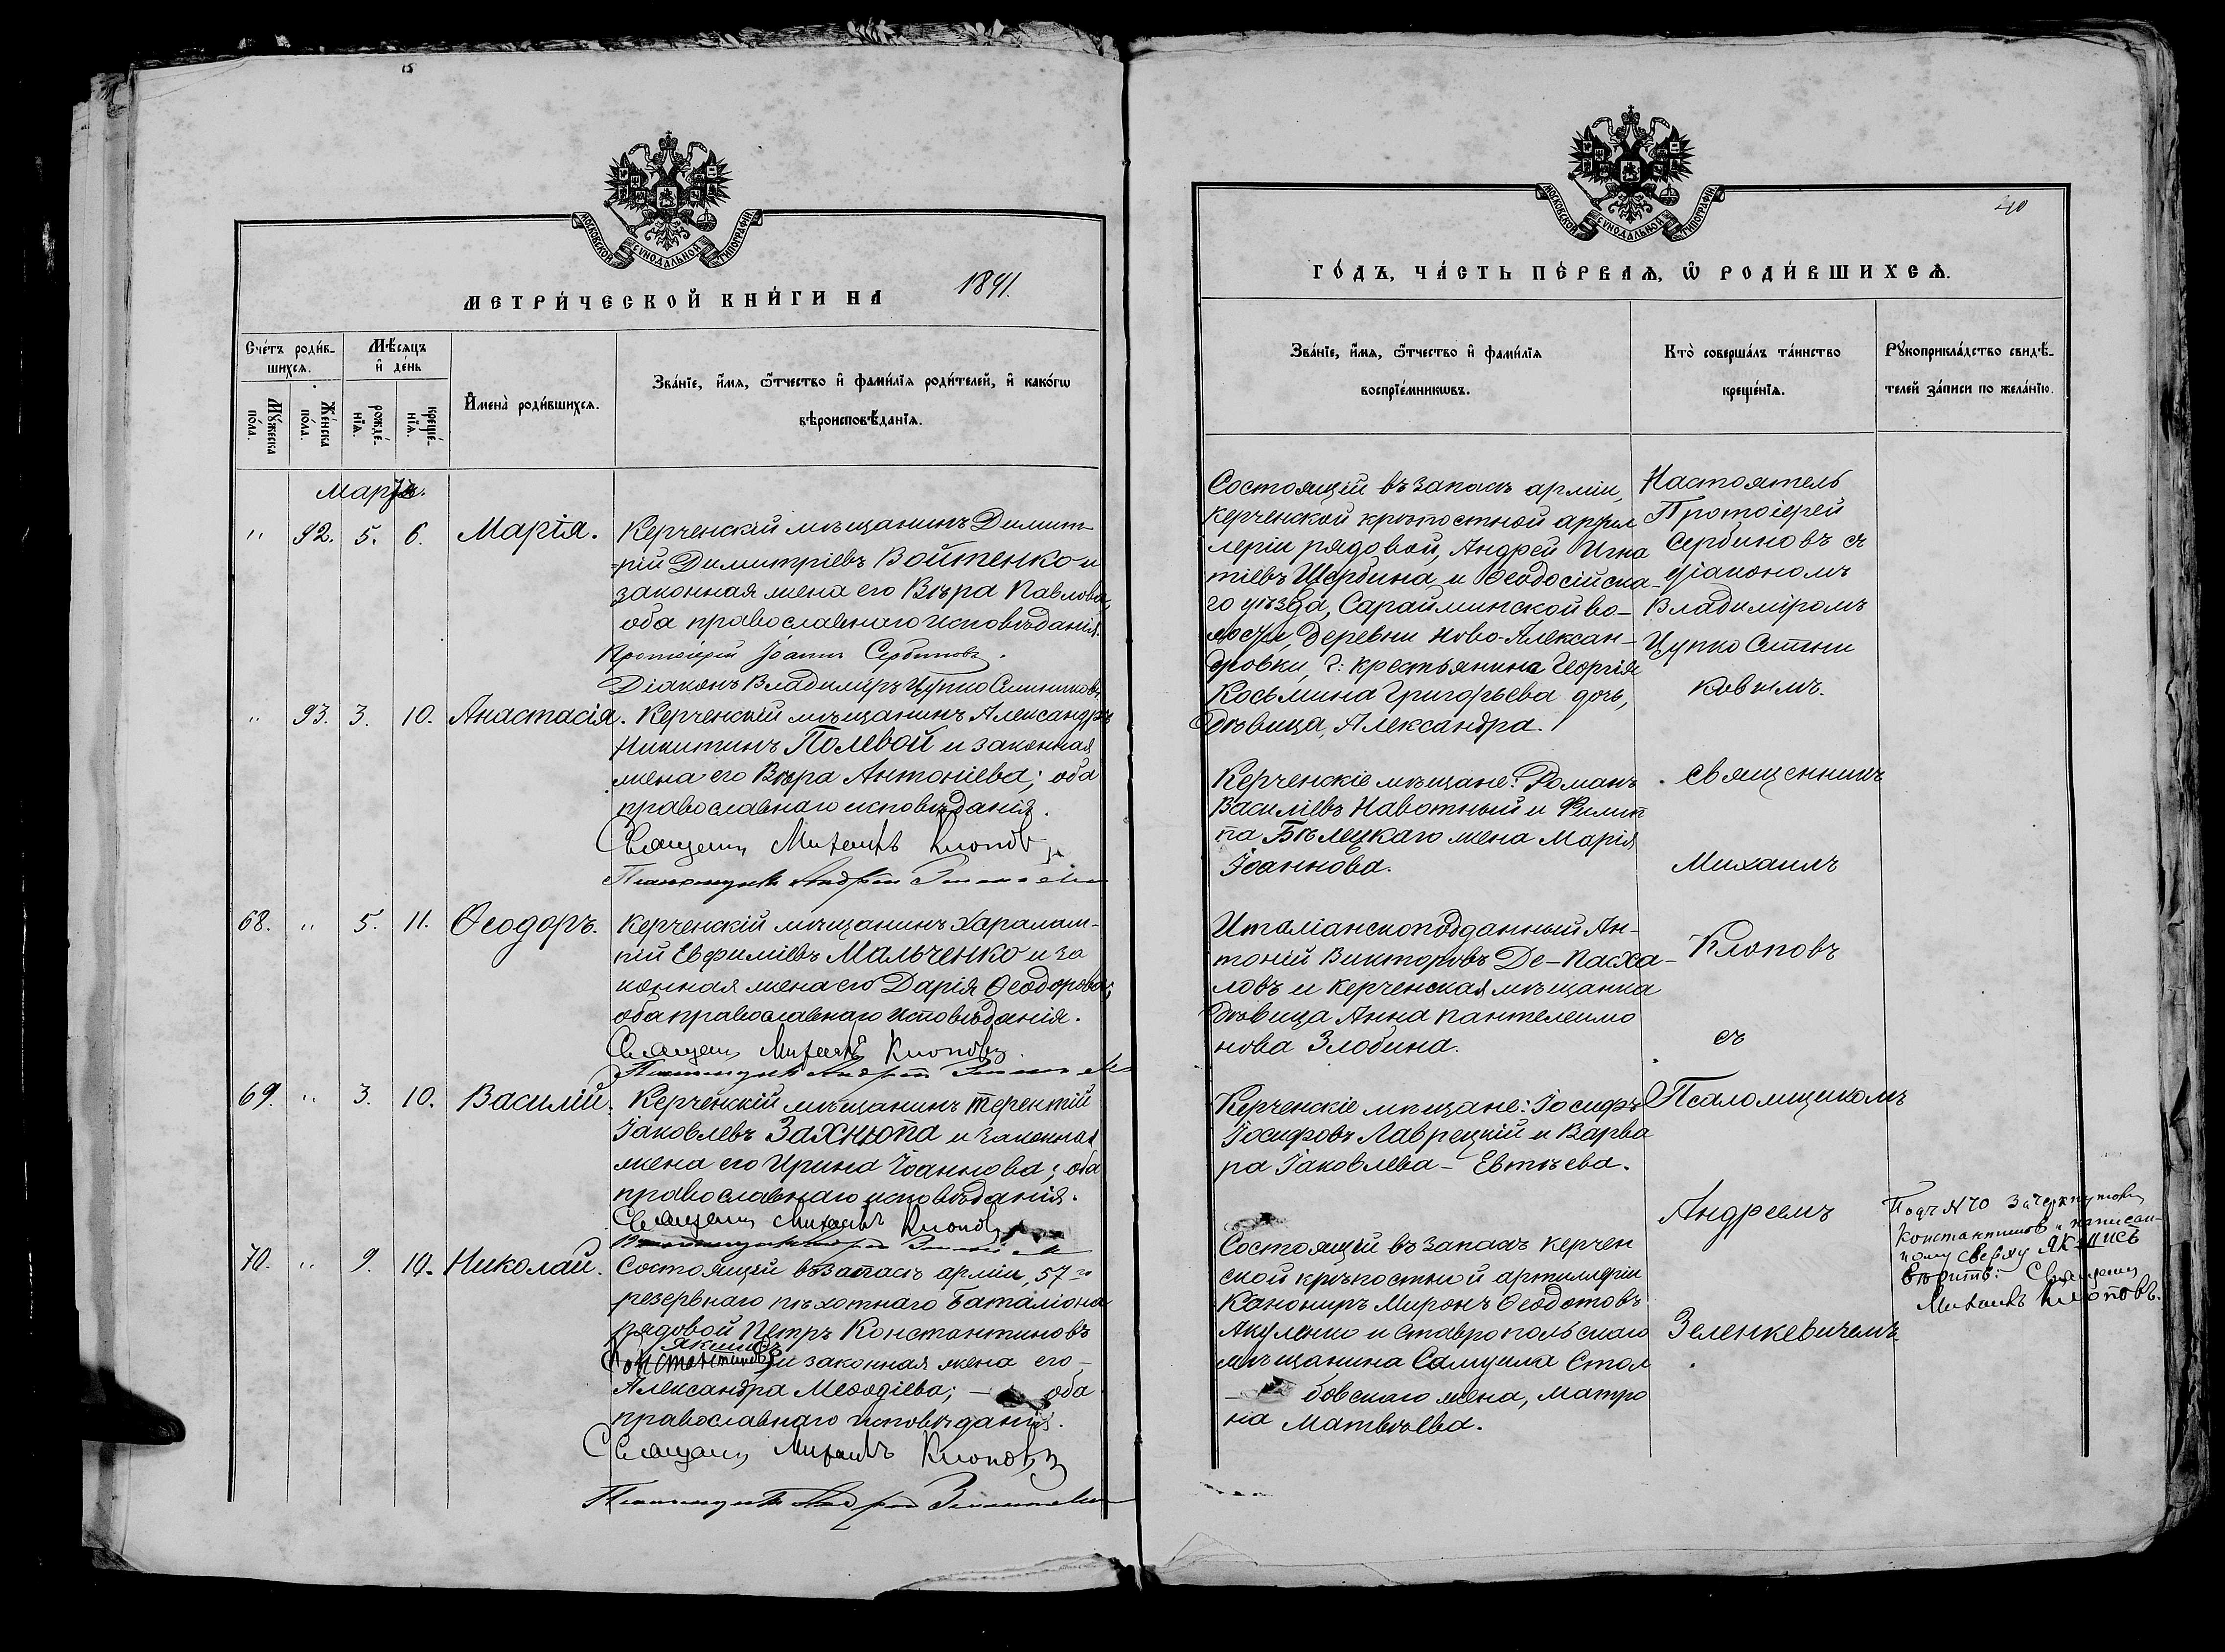 МОСКОВСКОЙ СѴНОДАЛЬНОЙ ТИПОГРАФІИ
МЕТРИ́ЧЕСКОЙ КНИ́ГИ НА 1891.
Сче́тъ роди́в-
шихсѧ.
Мѣ́сѧцъ
и҆ де́нь
Мꙋ́жеска
по́ла.
Же́нска
по́ла.
рожде́-
нїѧ.
креще́-
нїѧ.
И҆мена̀ роди́вшихсѧ.
Зва́нїе, и҆́мѧ, ѻ҆́тчество и҆ фами́лїѧ роди́телей, и҆ како́гѡ
вѣроисповѣ́данїѧ.
Мартъ.
" 92. 5. 6. Марія. Керченскій мѣщанинъ Димит-
рій Димитріевъ Войтенко и
законная жена его Вѣра Павлова,
оба православнаго исповѣданія.
Протоіерей Іоаннъ Сербиновъ.
Діаконъ Владиміръ Цупко
" 93. 3. 10. Анастасія. Керченскій мѣщанинъ Александръ
Никитинъ Полевой и законная
жена его Вѣра Антоніева; оба
православнаго исповѣданія.
Священ. Михаилъ Клоповъ
Псаломщикъ Андрей
68. " 5. 11. Ѳеодоръ. Керченскій мѣщанинъ Харалам-
пій Евфиміевъ Мальченко и за
конная жена его Дарія Ѳеодорова;
оба православнаго исповѣданія.
Священ. Михаилъ Клоповъ.
Псаломщикъ Андрей
69. " 3. 10. Василій. Керченскій мѣщанинъ Терентій
Іаковлевъ Захнюпа и законная
жена его Ирина Іоаннова; оба
православнаго исповѣданія.
Священ. Михаилъ Клоповъ
Псаломщикъ Андрей
70. " 9. 10. Николай. Состоящій въ запасѣ арміи, 57го
резервнаго пѣхотнаго баталіона
рядовой Петръ Константиновъ
Якимисъ
Константиновъ и законная жена его
Александра Меѳодіева; — оба
православнаго исповѣданія.
Священ. Михаилъ Клоповъ
Псаломщикъ Андрей
40
МОСКОВСКОЙ СѴНОДАЛЬНОЙ ТИПОГРАФІИ
ГО́ДЪ, ЧА́СТЬ ПЕ́РВАѦ, Ѡ҆ РОДИ́ВШИХСѦ.
Зва́нїе, и҆́мѧ, ѻ҆́тчество и҆ фами́лїѧ
воспрїе́мникѡвъ.
Кто̀ соверша́лъ та́инство
креще́нїѧ.
Рꙋкоприкла́дство свидѣ́-
телей за́писи по жела́нїю.
Состоящій въ запасѣ арміи,
Керченской крѣпостной артил
леріи рядовой, Андрей Игна
тіевъ Щербина и Ѳеодосійска-
го уѣзда, Сарайминской во-
лости, деревни Ново-Алексан-
дровки, крестьянина Георгія
Косьмина Григорьева дочь,
дѣвица, Александра.
Настоятель
Протоіерей
Сербиновъ съ
діакономъ
Владиміромъ
Цупко
Керченскіе мѣщане: Романъ
Василіевъ Навотный и Филип
па Бѣлецкаго жена Марія
Іоаннова.
Италіанскоподданный Ан-
тоній Викторовъ Де-Пасха-
ловъ и керченская мѣщанка
дѣвица Анна Пантелеимо
нова Злобина.
Керченскіе мѣщане: Іосифъ
Іосифовъ Лаврецкій и Варва
ра Іаковлева - Евтѣева.
Состоящій въ запасѣ керчен
ской крѣпостной артиллеріи
Канониръ Миронъ Ѳеодотовъ
Акуленко и Ставропольскаго
мѣщанина Самуила Стол
бовскаго жена, Матро
на Матвѣева.
Священникъ
Михаилъ
Клоповъ
съ
Псаломщикомъ
Андреемъ
Зеленкевичемъ
Подъ N 70 зачеркнутому
Константиновъ и написан-
ному сверху Якимисъ
вѣрить: Священ.
Михаилъ Клоповъ.